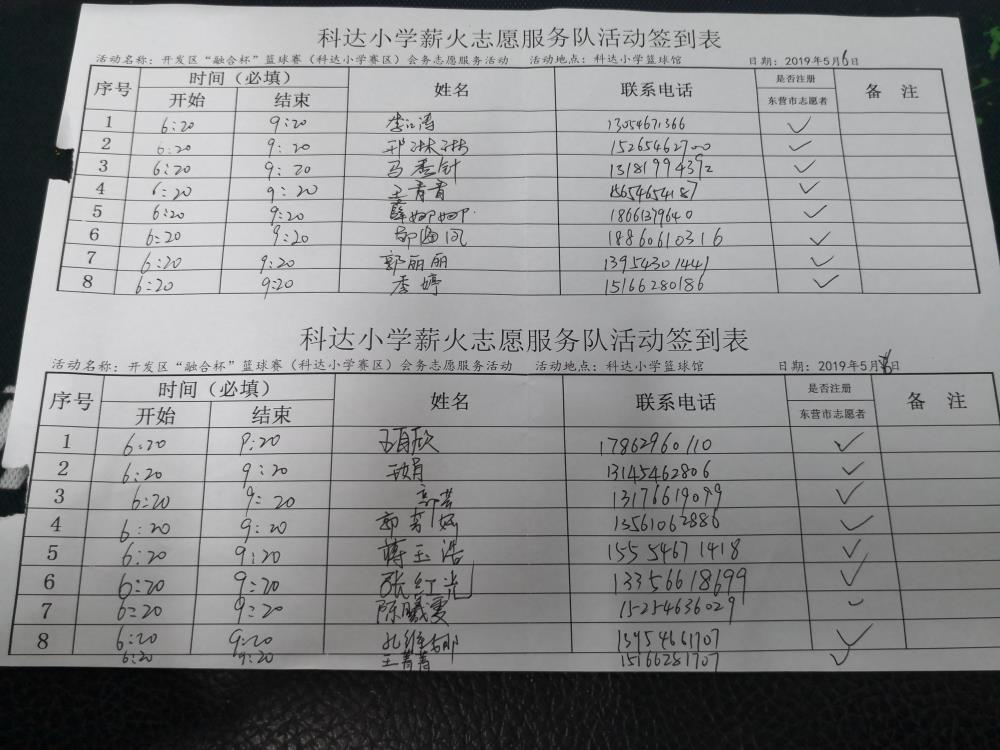 科达小学薪火志愿服务队活动签到表
活动名称：开发区“融合杯”篮球赛（科达小学赛区）会务志愿服务活动 活动地点：科达小学篮球馆 日期：2019年5月6日
序号 时间（必填） 姓名 联系电话 是否注册 备 注
开始 结束 东营市志愿者
1 6:20 9:20 李江涛 13054671366 ✓
2 6:20 9:20 邢琳琳 15265462700 ✓
3 6:20 9:20 马秀针 13181994392 ✓
4 6:20 9:20 王青青 18654654187 ✓
5 6:20 9:20 薛娜娜 18661379640 ✓
6 6:20 9:20 18860610316 ✓
7 6:20 9:20 郭丽丽 13954301441 ✓
8 6:20 9:20 李婷 15166280186 ✓
科达小学薪火志愿服务队活动签到表
活动名称：开发区“融合杯”篮球赛（科达小学赛区）会务志愿服务活动 活动地点：科达小学篮球馆 日期：2019年5月 日
序号 时间（必填） 姓名 联系电话 是否注册 备 注
开始 结束 东营市志愿者
1 6:20 9:20 17862960110 ✓
2 6:20 9:20 13145462806 ✓
3 6:20 9:20 郭芸 13176619099 ✓
4 6:20 9:20 13561062886 ✓
5 6:20 9:20 蒋玉浩 15554671418 ✓
6 6:20 9:20 张红光 13356618699 ✓
7 6:20 9:20 陈曦雯 15254636029 ✓
8 6:20 9:20 13954661707 ✓
6:20 9:20 王菁菁 15166281707 ✓